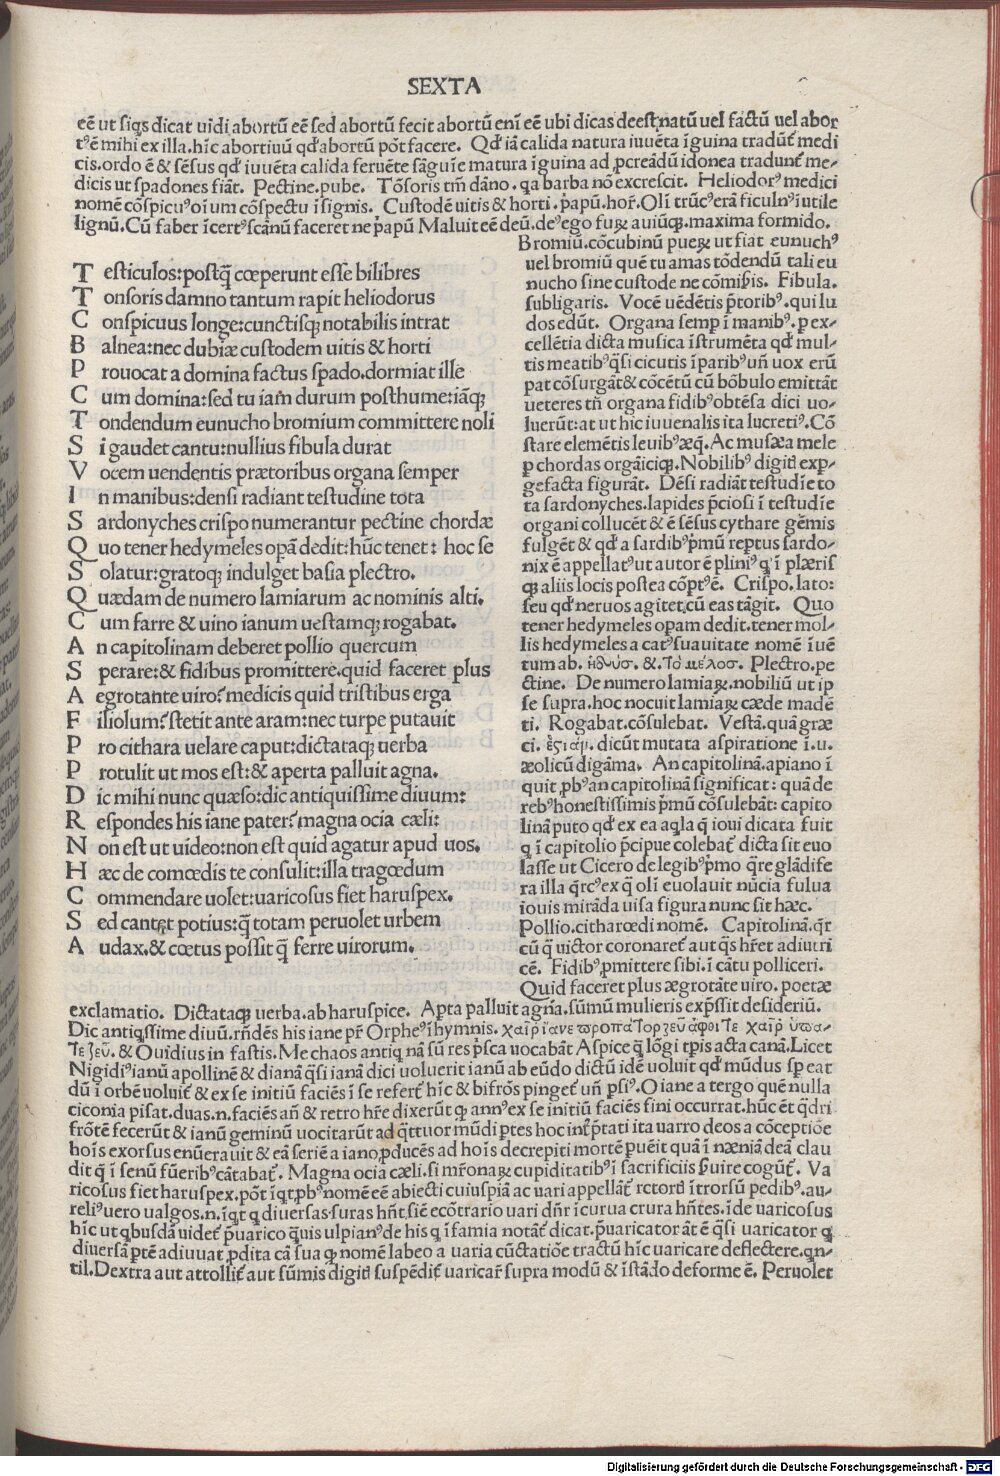 SEXTA
eē ut siqs dicat uidi abortū eē sed abortū fecit abortū eni eē ubi dicas deest natū uel factū uel abor
t⁹ē mihi ex illa. hīc abortiuū qđ abortū pōt facere. Qđ iā calida natura iuuēta īguina tradūt medi
cis. ordo ē & sēsus qđ iuuēta calida feruēte sāguīe matura īguina ad pcreādū idonea tradunt me-
dicis ut spadones fiāt. Pectine. pube. Tōsoris tm̄ dāno. qa barba nō excrescit. Heliodor⁹ medici
nomē cōspicu⁹ oīum cōspectu īsignis. Custodē uitis & horti. pāpū. hor. Oli trūc⁹ erā ficuln⁹ iutile
lignū. Cū faber īcert⁹ scānū faceret ne pāpū Maluit eē deū. de⁹ ego furꝝ auiūqꝫ. maxima formido.
T esticulos: postq̄ cœperunt esse bilibres
T onsoris damno tantum rapit heliodorus
C onspicuus longe: cunctisqꝫ notabilis intrat
B alnea: nec dubiæ custodem uitis & horti
P rouocat a domina factus spado. dormiat ille
C um domina: sed tu iam durum posthume: iāqꝫ
T ondendum eunucho bromium committere noli
S i gaudet cantu: nullius fibula durat
V ocem uendentis prætoribus organa semper
I n manibus: densi radiant testudine tota
S ardonyches crispo numerantur pectine chordæ
Q uo tener hedymeles opā dedit: hūc tenet: hoc se
S olatur: gratoqꝫ indulget basia plectro.
Q uædam de numero lamiarum ac nominis alti.
C um farre & uino ianum uestamqꝫ rogabat.
A n capitolinam deberet pollio quercum
S perare: & fidibus promittere. quid faceret plus
A egrotante uiro? medicis quid tristibus erga
F iliolum? stetit ante aram: nec turpe putauit
P ro cithara uelare caput: dictataqꝫ uerba
P rotulit ut mos est: & aperta palluit agna.
D ic mihi nunc quæso: dic antiquissime diuum:
R espondes his iane pater? magna ocia cæli:
N on est ut uideo: non est quid agatur apud uos.
H æc de comœdis te consulit: illa tragœdum
C ommendare uolet: uaricosus fiet haruspex.
S ed cantet potius: q̄ totam peruolet urbem
A udax. & cœtus possit q̄ ferre uirorum.
Bromiū. cōcubinū pueꝝ ut fiat eunuch⁹
uel bromiū quē tu amas tōdendū tali eu
nucho sine custode ne cōmiſis. Fibula.
subligaris. Vocē uēdētis ptorib⁹. qui lu
dos edūt. Organa semp ī manib⁹. p ex-
cellētia dicta musica īstrumēta qđ mul-
tis meatib⁹ q̄si cicutis īparib⁹ uñ uox erū
pat cōsurgāt & cōcētū cū bōbulo emittāt
ueteres tñ organa fidib⁹ obtēsa dici uo-
luerūt: at ut hic iuuenalis ita lucreti⁹. Cō
stare elemētis leuib⁹ æq̄. Ac musæa mele
p chordas orgāiciqꝫ. Nobilib⁹ digiti exp-
gefacta figurāt. Dēsi radiāt testudīe to
ta sardonyches. lapides pciosi ī testudīe
organi collucēt & ē sēsus cythare gēmis
fulgēt & qđ a sardib⁹ pmū reptus sardo-
nix ē appellat⁹ ut autor ē plini⁹ q ī plærisſ
qꝫ aliis locis postea cōpt⁹ ē. Crispo. lato:
seu qđ neruos agitet. cū eas tāgit. Quo
tener hedymeles opam dedit. tener mol-
lis hedymeles a cāt⁹ suauitate nomē īuē
tum ab. ἡδυύσ. &. το μέλοσ. Plectro. pe
ctine. De numero lamiaꝝ. nobiliū ut ip
se supra. hoc nocuit lamiaꝝ cæde madē
ti. Rogabat. cōsulebat. Vestā. quā græ
ci. ἑστιάμ. dicūt mutata aspiratione ī. u.
æolicū digāma. An capitolinā. apiano ī
quit pb⁹ an capitolinā significat: quā de
reb⁹ honestissimis pmū cōsulebāt: capito
linā puto qđ ex ea aqla q̄ ioui dicata fuit
q ī capitolio pcipue colebat dicta sit euo
lasse ut Cicero de legib⁹ pmo q̄re glādife
ra illa q̄rc⁹ ex q̄ oli euolauit nūcia fulua
iouis mirāda uisa figura nunc sit hæc.
Pollio. citharœdi nomē. Capitolinā. q̄r
cū q̄ uictor coronaret aut q̄s hret adiutri
cē. Fidib⁹ pmittere sibi. ī cātu polliceri.
Quid faceret plus ægrotāte uiro. poetæ
exclamatio. Dictataqꝫ uerba. ab haruspice. Apta palluit agna. sūmū mulieris expssit desideriū.
Dic antiqssime diuū. rñdēs his iane pr̄ Orphe⁹ ī hymnis. χαῖρ ἰανε προπάτορ ζεῦ ἄφθιτε χαῖρ ὕπα-
τε ζεῦ. & Ouidius in fastis. Me chaos antiq nā sū res psca uocabāt Aspice q̄ lōgi tpis acta canā. Licet
Nigidi⁹ ianū apollinē & dianā q̄si ianā dici uoluerit ianū ab eūdo dictū idē uoluit qđ mūdus sp eat
dū ī orbē uoluit & ex se initiū faciēs ī se refert hīc & bifrōs pinget uñ psi⁹. O iane a tergo quē nulla
ciconia pisat. duas. n. faciēs añ & retro hre dixerūt qꝫ ann⁹ ex se initiū faciēs fini occurrat. hūc ēt q̄dri
frōtē fecerūt & ianū geminū uocitarūt ad q̄ttuor mūdi ptes hoc intptati ita uarro deos a cōceptiōe
hoīs exorsus enūerauit & eā seriē a iano pducēs ad hoīs decrepiti mortē puēit quā ī næniā deā clau
dit q̄ ī senū fūerib⁹ cātabat. Magna ocia cæli. si mronaꝝ cupiditatib⁹ ī sacrificiis puire cogūt. Va
ricosus fiet haruspex. pōt īqt pb⁹ nomē eē abiecti cuiuspiā ac uari appellāt retorti ītrorsū pedib⁹. au-
reli⁹ uero ualgos. n. īqt q diuersas suras hñt. siē ecōtrario uari dñr īcurua crura hñtes. īde uaricosus
hīc ut qbusdā uidet puarico q̄uis ulpian⁹ de his q īfamia notāt dicat. puaricator āt ē q̄si uaricator q
diuersā ptē adiuuat pdita cā sua qꝫ nomē labeo a uaria cūctatiōe tractū hīc uaricare deflectere. qn-
til. Dextra aut attollit aut sūmis digiti suspēdit uaricar̄ supra modū & īstādo deforme ē. Peruolet
Digitalisierung gefördert durch die Deutsche Forschungsgemeinschaft - DFG